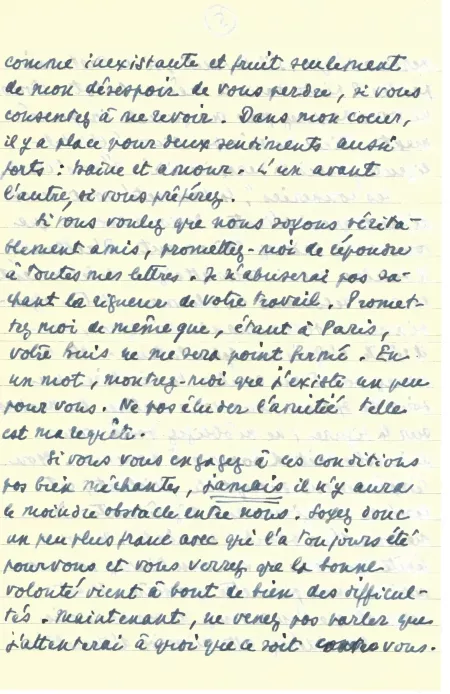 comme inexistante et fruit seulement
de mon désespoir de vous perdre, si vous
consentez à me revoir. Dans mon coeur,
il y a place pour deux sentiments aussi
forts : haine et amour. L'un avant
l'autre, si vous préférez.
Si vous voulez que nous soyons vérita-
blement amis, promettez-moi de répondre
à toutes mes lettres. Je n'abuserai pas sa-
chant la rigueur de votre travail. Promet-
tez moi de même que, étant à Paris,
votre huis ne me sera point fermé. En
un mot, montrez-moi que j'existe un peu
pour vous. Ne pas éluder l'amitié telle
est ma requête.
Si vous vous engagez à ces conditions
pas bien méchantes, jamais il n'y aura
le moindre obstacle entre nous. Soyez donc
un peu plus franc avec qui l'a toujours été
pour vous et vous verrez que la bonne
volonté vient à bout de bien des difficul-
tés. Maintenant, ne venez pas parler que
j'attenterai à quoi que ce soit contre vous.